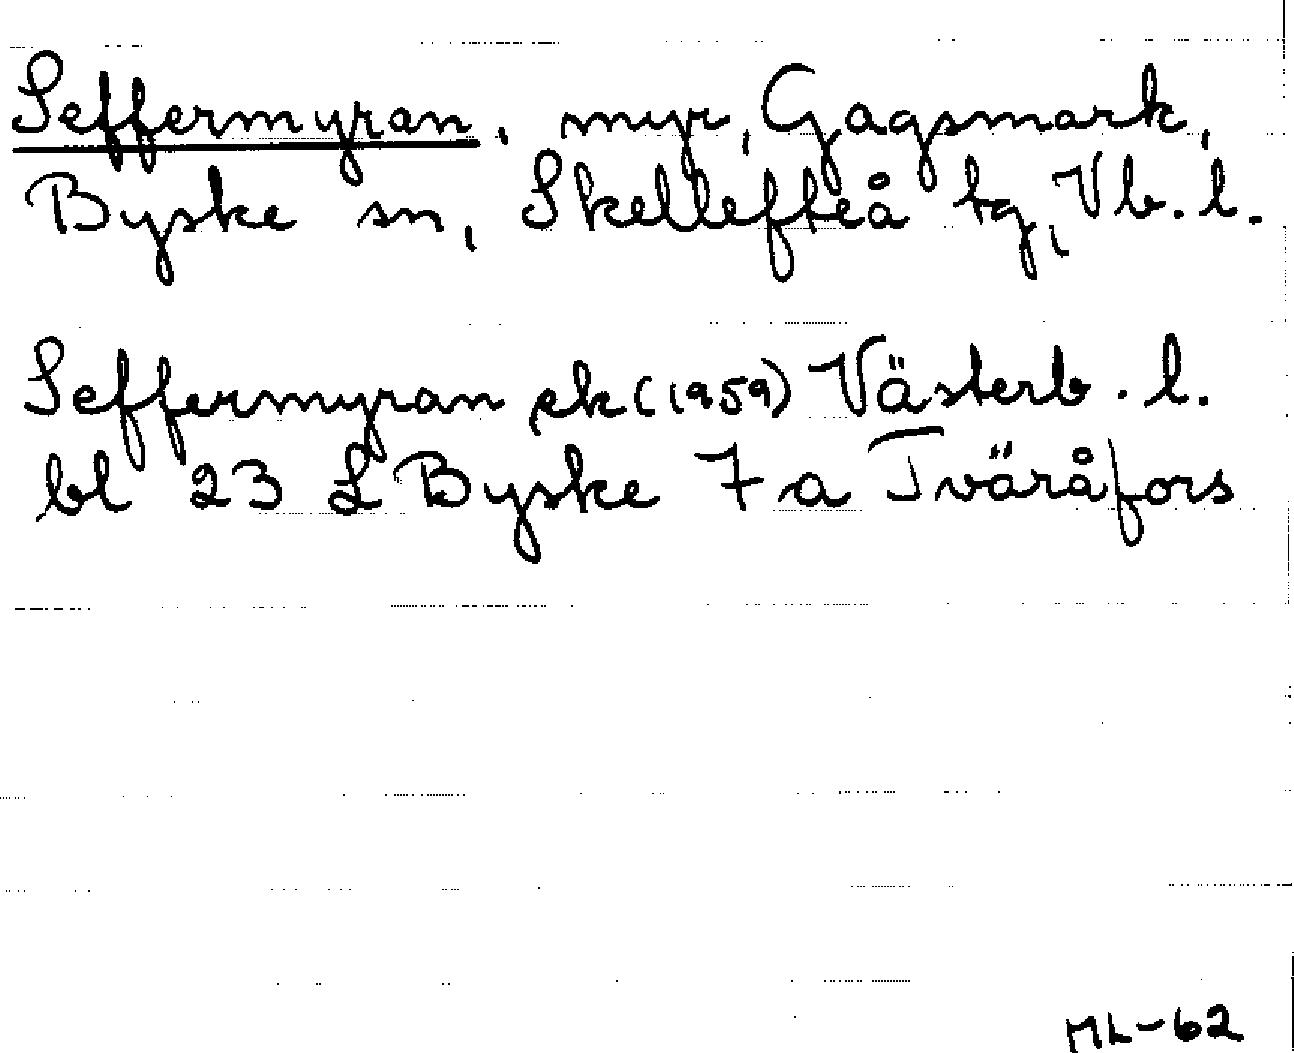 Seffermyran, myr, Gagsmark,
Byske sn, Skellefteå tg, Vb. l.
Seffermyran ek (1959) Västerb. l.
bl 23 L Byske 7 a Tväråfors
ML-62